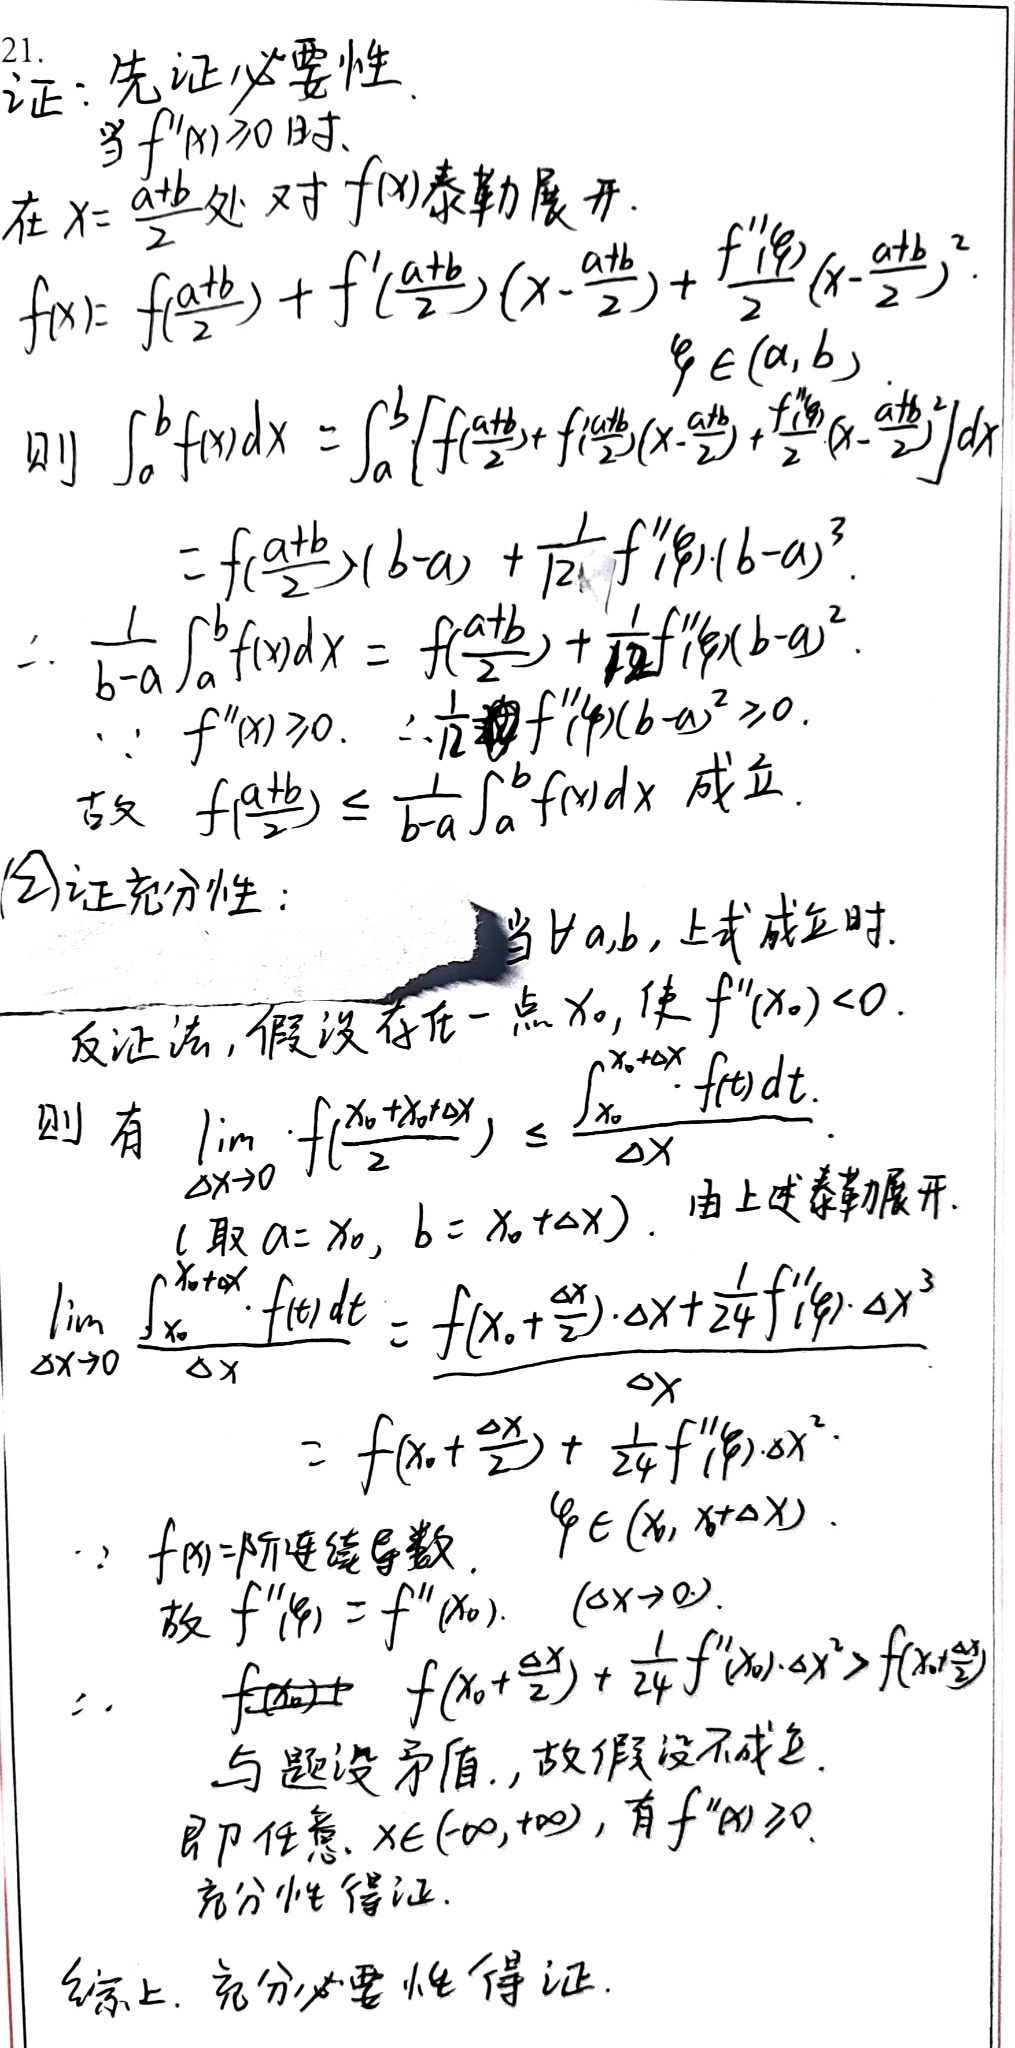 21.
证：先证必要性.
当 f''(x)≥0 时、
在 x=\frac{a+b}{2} 处 对 f(x)泰勒展开.
f(x)= f(\frac{a+b}{2}) + f'(\frac{a+b}{2})(x-\frac{a+b}{2}) + \frac{f''(φ)}{2}(x-\frac{a+b}{2})^2.
φ∈(a,b).
则 ∫_a^b f(x)dx = ∫_a^b [f(\frac{a+b}{2})+f'(\frac{a+b}{2})(x-\frac{a+b}{2})+\frac{f''(φ)}{2}(x-\frac{a+b}{2})^2]dx
= f(\frac{a+b}{2})(b-a) + \frac{1}{12} f''(φ)·(b-a)^3.
∴ \frac{1}{b-a} ∫_a^b f(x)dx = f(\frac{a+b}{2}) + \frac{1}{12} f''(φ)(b-a)^2.
∵ f''(x)≥0. ∴ \frac{1}{12} f''(φ)(b-a)^2 ≥0.
故 f(\frac{a+b}{2}) ≤ \frac{1}{b-a} ∫_a^b f(x)dx 成立.
(2)证充分性：
当∀a,b, 上式成立时.
反证法, 假设存在一点 x₀, 使 f''(x₀)<0.
则有 \lim_{Δx→0} ·f(\frac{x₀+x₀+Δx}{2}) ≤ \frac{∫_{x₀}^{x₀+Δx}·f(t)dt.}{Δx}.
(取 a=x₀, b=x₀+Δx). 由上述泰勒展开.
\lim_{Δx→0} \frac{∫_{x₀}^{x₀+Δx}·f(t)dt}{Δx} = \frac{f(x₀+\frac{Δx}{2})·Δx+\frac{1}{24}f''(φ)·Δx^3}{Δx}
= f(x₀+\frac{Δx}{2}) + \frac{1}{24} f''(φ)·Δx^2.
φ∈(x₀, x₀+Δx).
∵ f(x)二阶连续导数.
故 f''(φ) = f''(x₀). (Δx→0).
∴ f(x₀+\frac{Δx}{2}) + \frac{1}{24} f''(x₀)·Δx^2 > f(x₀+\frac{Δx}{2})
与题设矛盾., 故假设不成立.
即任意. x∈(-∞,+∞), 有 f''(x)≥0.
充分性得证.
综上. 充分必要性得证.